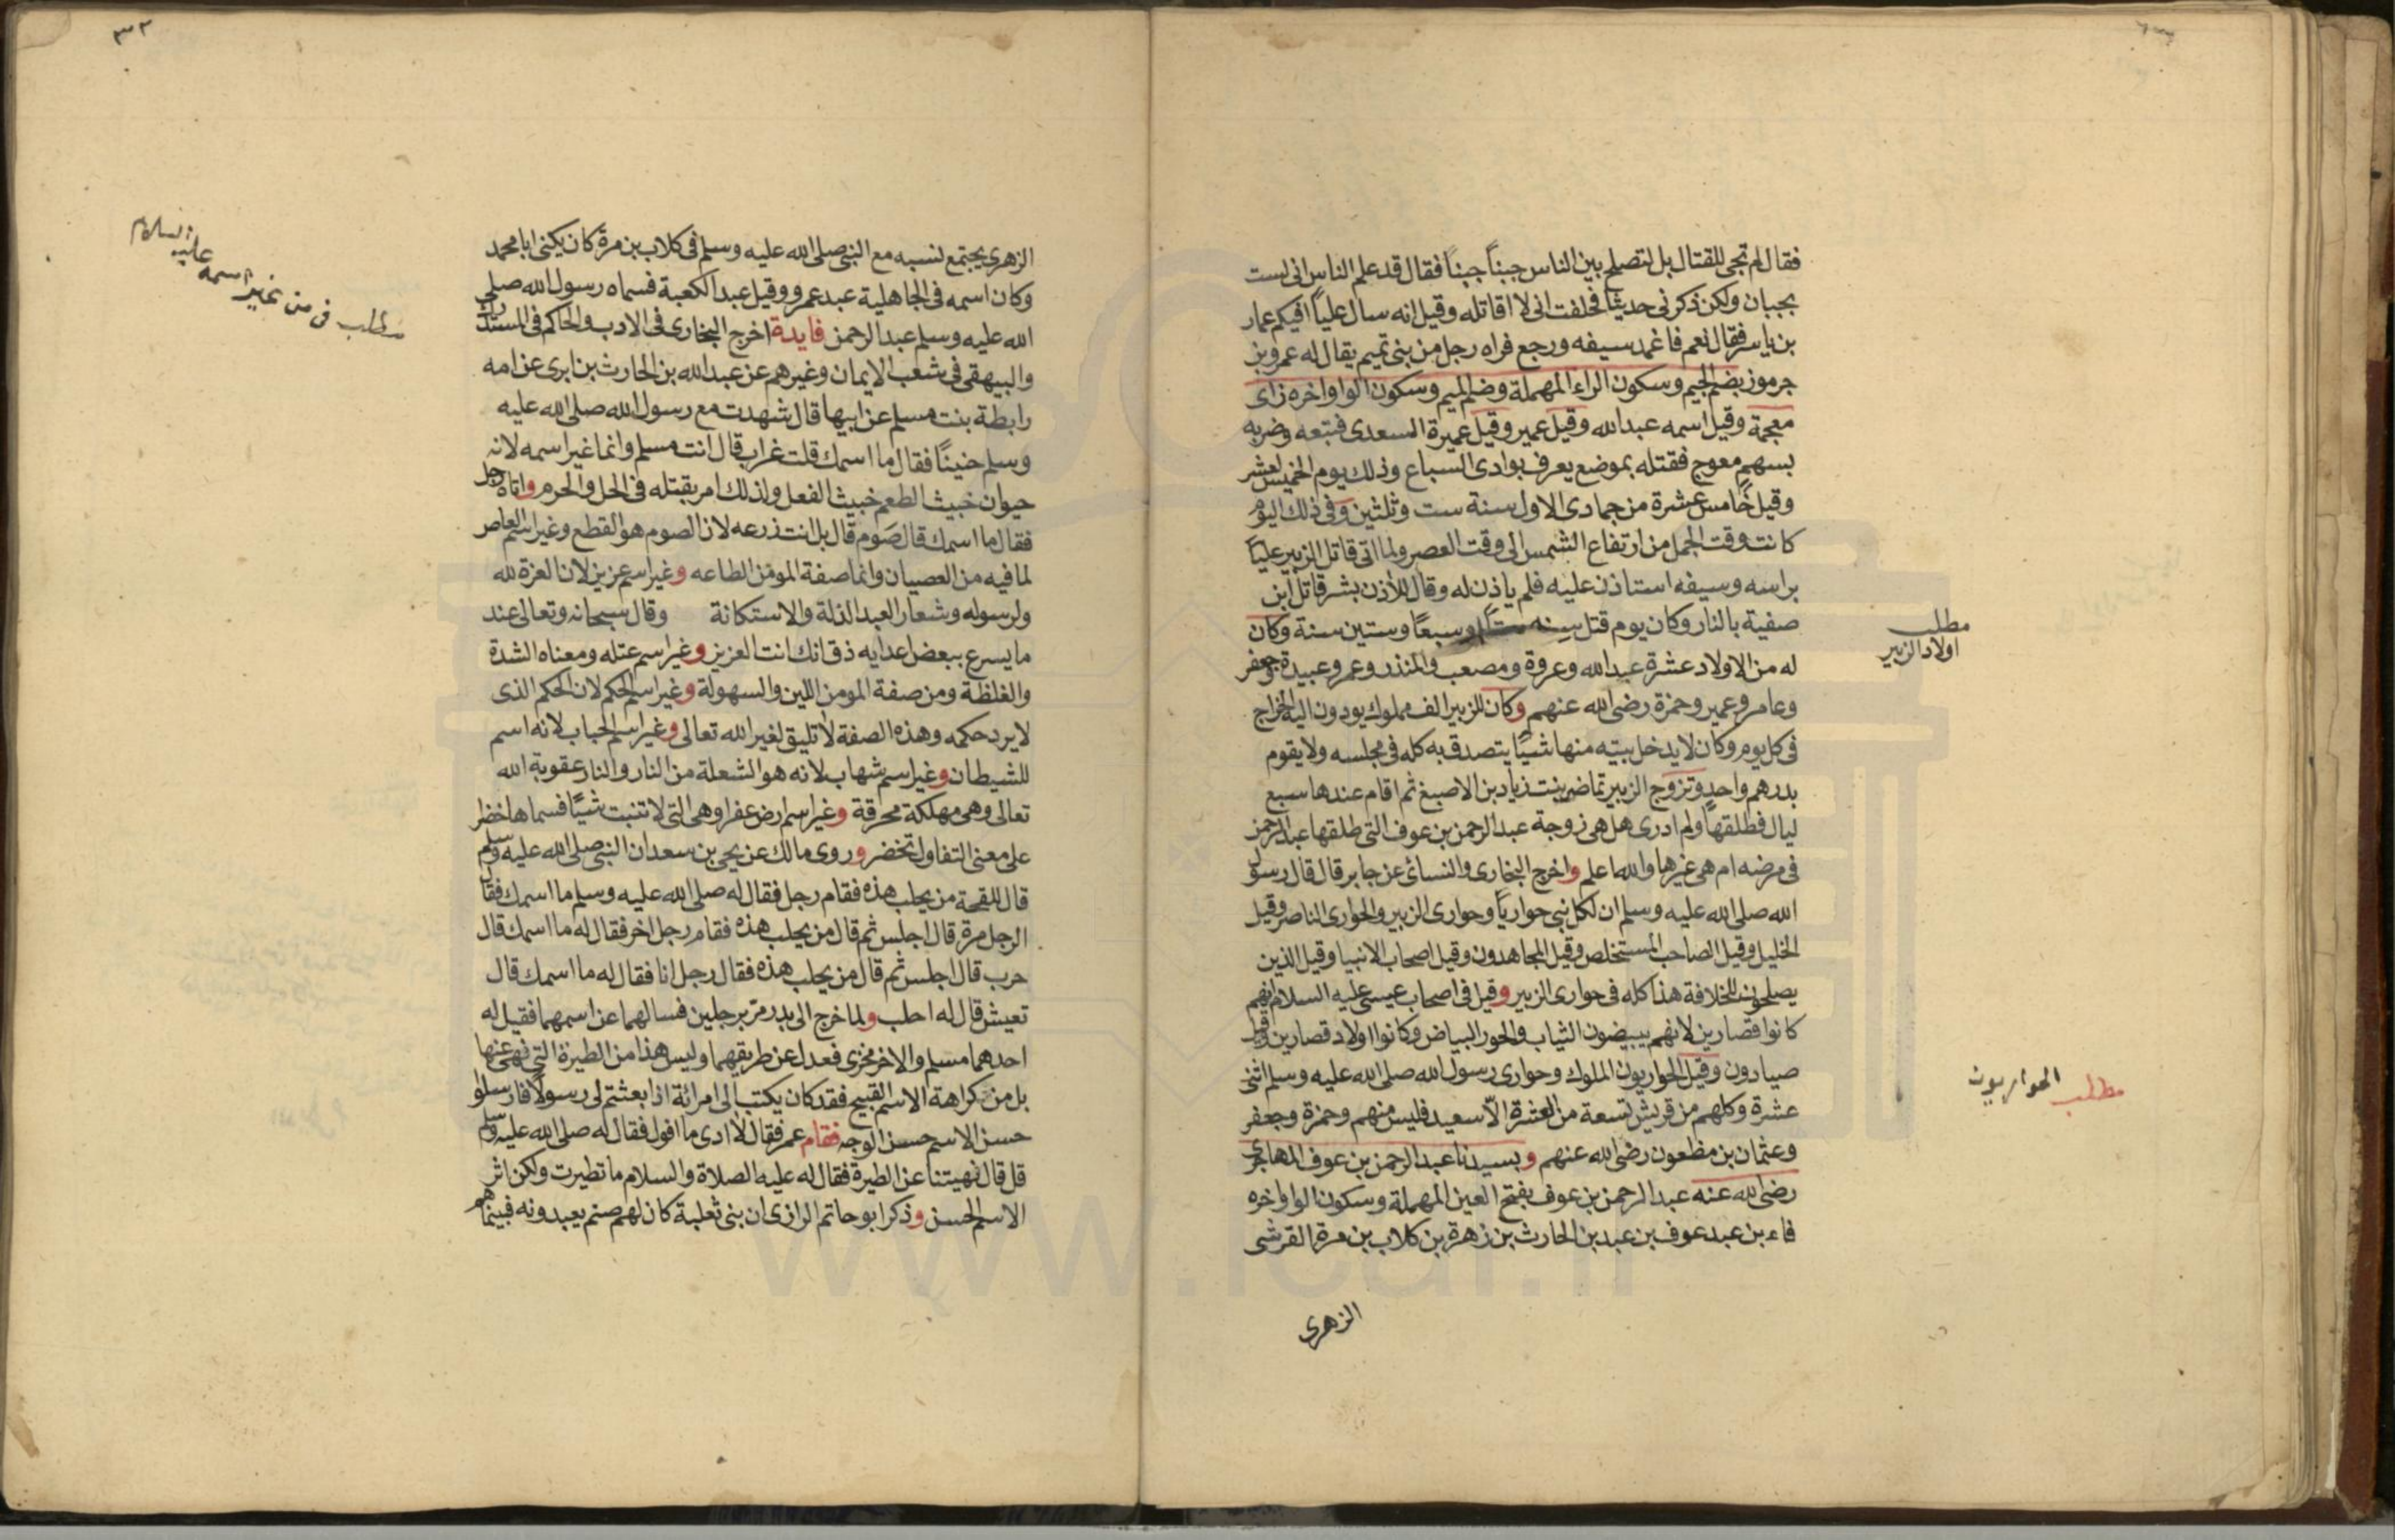 فقال لم تجى للقتال بل لتصلح بين الناس جبناً جبناً فقال قد علم الناس انى لست
بجبان ولكن ذكرنى حديثا فحلفت انى لا اقاتله وقيل انه سال علياً افيكم عمار
بن ياسر فقال نعم فاغمد سيفه ورجع فراه رجل من بنى تميم يقال له عمرو بن
جرموز بضم الجيم وسكون الراء المهملة وضم الميم وسكون الواو واخره زاى
معجمة وقيل اسمه عبدالله وقيل عمير وقيل عميرة السعدى فتبعه وضربه
بسهم معوج فقتله بموضع يعرف بوادى السباع وذلك يوم الخميس لعشر
وقيل خامس عشرة من جمادى الاول سنة ست وثلثين وفى ذلك اليوم
كانت وقت الجمل من ارتفاع الشمس الى وقت العصر ولما اتى قاتل الزبير علياً
براسه وسيفه استاذن عليه فلم ياذن له وقال للأذن بشر قاتل ابن
صفية بالنار وكان يوم قتل سنه وسبعاً وستين سنة وكان
مطلب
اولاد الزبير
له من الاولاد عشرة عبدالله وعروة ومصعب والمنذر وعمر وعبيدة وجعفر
وعامر وعمير وحمزة رضى الله عنهم وكان للزبير الف مملوك يودون اليه الخراج
فى كل يوم وكان لا يدخل بيته منها شيًا يتصدق به كله فى مجلسه ولا يقوم
بدرهم واحد وتزوج الزبير تماضر بنت زياد بن الاصبغ ثم اقام عندها سبع
ليال فطلقها ولم ادرى هل هى زوجة عبد الرحمن بن عوف التى طلقها عبد الرحمن
فى مرضه ام هى غيرها والله اعلم واخرج البخارى والنسائ عن جابر قال قال رسول
الله صلى الله عليه وسلم ان لكل نبى حوارياً وحوارى الزبير والحوارى الناصر وقيل
الخليل وقيل الصاحب المستخلص وقيل المجاهدون وقيل اصحاب الانبيا وقيل الذين
يصلحون للخلافة هذا كله فى حوارى الزبير وقيل فى اصحاب عيسى عليه السلام انهم
كانوا قصارين لانهم يبيضون الثياب والحور البياض وكانوا اولاد قصارين وقيل
مطلب الحواريون
صيادون وقيل الحواريون الملوك وحوارى رسول الله صلى الله عليه وسلم اثنى
عشرة وكلهم من قريش تسعة من العشرة الّا سعيد فليس منهم وحمزة وجعفر
وعثمان بن مظعون رضى الله عنهم وبسيدنا عبد الرحمن بن عوف المهاجرى
رضى الله عنه عبد الرحمن بن عوف بفتح العين المهملة وسكون الواو واخره
فاء بن عبد عوف بن عبد بن الحارث بن زهرة بن كلاب بن مرة القرشى
الزهرى
٣٢
الزهرى يجتمع نسبه مع النبى صلى الله عليه وسلم فى كلاب بن مرة كان يكنى ابا محمد
وكان اسمه فى الجاهلية عبد عمرو وقيل عبد الكعبة فسماه رسول الله صلى
مطلب فى من غير اسمه عليه السلام
الله عليه وسلم عبد الرحمن فايدة اخرج البخارى فى الادب والحاكم فى المستدرك
والبيهقى فى شعب الايمان وغيرهم عن عبد الله بن الحارث بن ابرى عن امه
رابطة بنت مسلم عن ابيها قال شهدت مع رسول الله صلى الله عليه
وسلم حنينًا فقال ما اسمك قلت غراب قال انت مسلم وانما غير اسمه لانه
حيوان خبيث الطعم خبيث الفعل ولذلك امر بقتله فى الحل والحرم واتاه رجل
فقال ما اسمك قال صَوم قال بل انت ذرعه لان الصوم هو القطع وغير اسم العاص
لما فيه من العصيان وانما صفة المومن الطاعه وغير اسم عزيز لان العزة لله
ولرسوله وشعار العبد الذلة والاستكانة وقال سبحانه وتعالى عند
ما يسرع ببعض اعدايه ذق انك انت العزيز وغير اسم عتله ومعناه الشدة
والغلظة ومن صفة المومن اللين والسهولة وغير اسم الحكم لان الحكم الذى
لا يرد حكمه وهذه الصفة لا تليق لغير الله تعالى وغير اسم الحباب لانه اسم
للشيطان وغير اسم شهاب لانه هو الشعلة من النار والنار عقوبة الله
تعالى وهى مهلكة محرقة وغير اسم ارض عفرا وهى التى لا تنبت شيًا فسماها خضرا
على معنى التفاول تخضر وروى مالك عن يحيى بن سعد ان النبى صلى الله عليه وسلم
قال للقحة من يحلب هذه فقام رجل فقال له صلى الله عليه وسلم ما اسمك فقال
الرجل مرة قال اجلس ثم قال من يحلب هذه فقام رجل اخر فقال له ما اسمك قال
حرب قال اجلس ثم قال من يحلب هذه فقال رجل انا فقال له ما اسمك قال
تعيش قال له احلب ولما خرج الى بدر مرّ برجلين فسالهما عن اسمهما فقيل له
احدهما مسلم والاخر مخزى فعدل عن طريقهما وليس هذا من الطيرة التى نهى عنها
بل من كراهة الاسم القبيح فقد كان يكتب الى امرائة اذا بعثتم لى رسولًا فارسلوا
حسن الاسم حسن الوجه فقام عمر فقال لا ادى ما اقول فقال له صلى الله عليه وسلم
قل قال نهيتنا عن الطيرة فقال له عليه الصلاة والسلام ما تطيرت ولكن اثر
الاسم الحسن وذكر ابو حاتم الرازى ان بنى ثعلبة كان لهم صنم يعبدونه فبينما هم
www.icai.ir